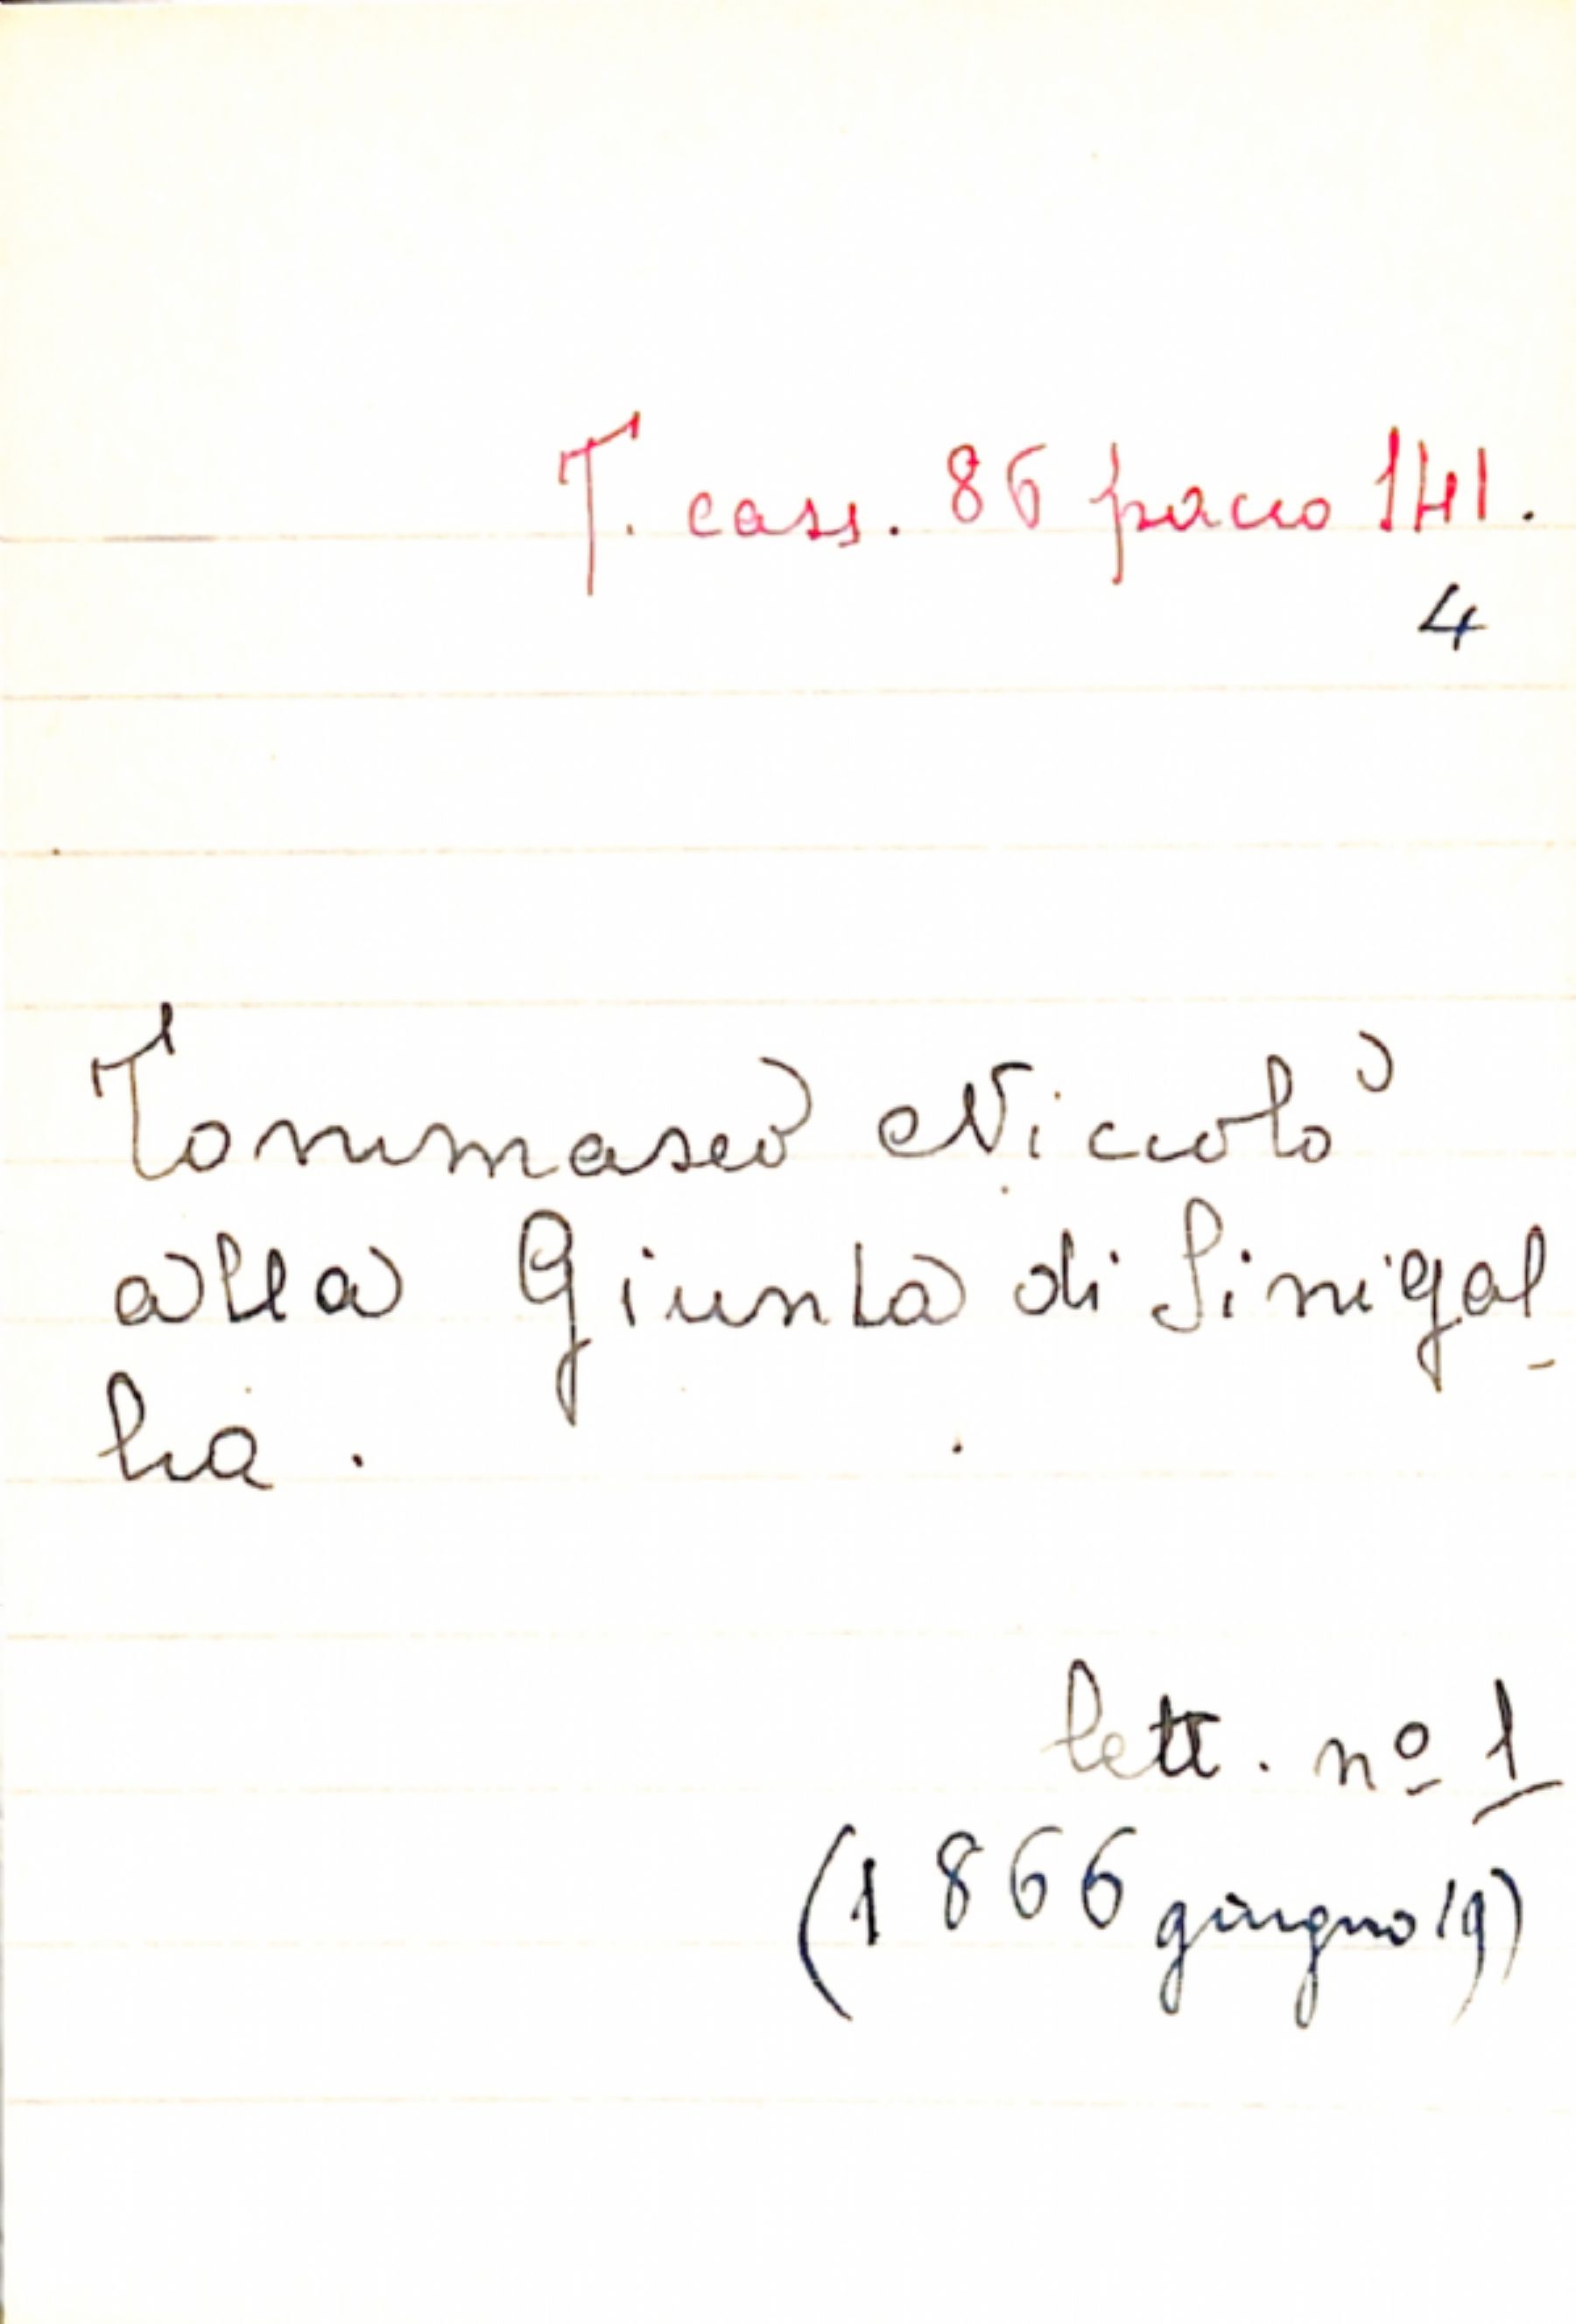 T. cass. 86 pacco 141.
4
Tommaseo Niccolò
alla Giunta di Sinigal-
lia.
lett. nº 1
(1866 giugno 19)